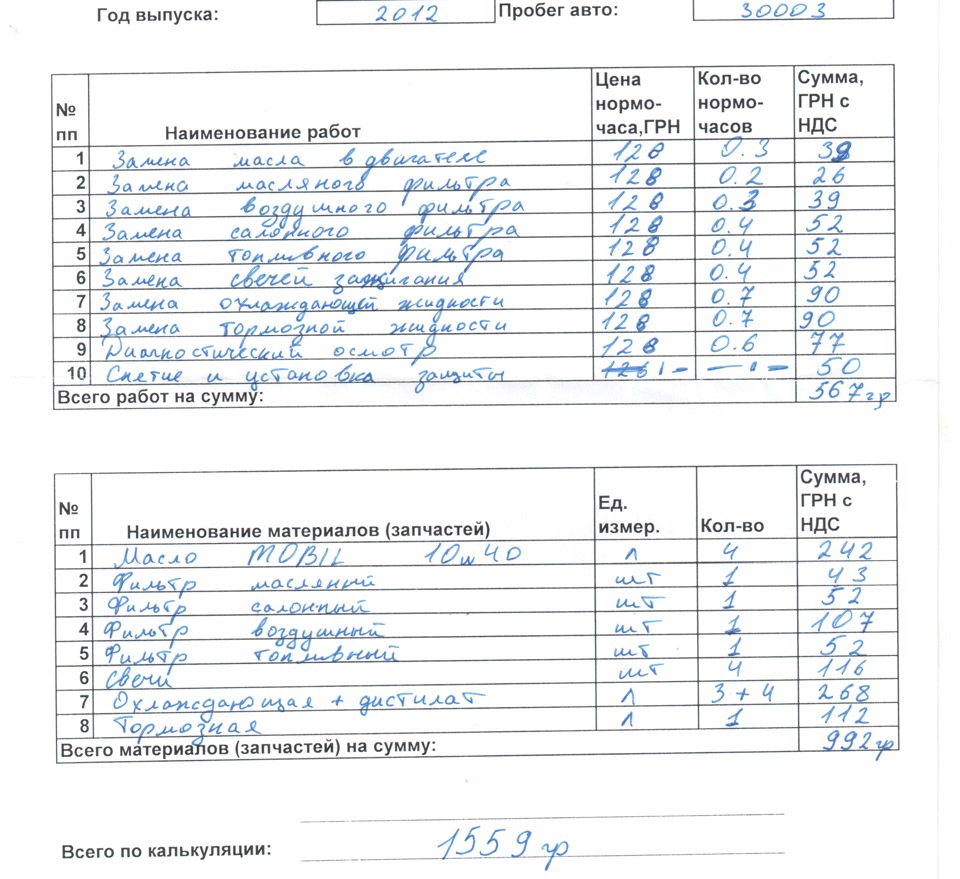 Год выпуска: 2012 Пробег авто: 30003
№ пп Наименование работ Цена нормо-часа,ГРН Кол-во нормо-часов Сумма, ГРН с НДС
1 Замена масла в двигателе 128 0.3 39
2 Замена масляного фильтра 128 0.2 26
3 Замена воздушного фильтра 128 0.3 39
4 Замена салонного фильтра 128 0.4 52
5 Замена топливного фильтра 128 0.4 52
6 Замена свечей зажигания 128 0.4 52
7 Замена охлаждающей жидкости 128 0.7 90
8 Замена тормозной жидкости 128 0.7 90
9 Диагностический осмотр 128 0.6 77
10 Снетие и установка защиты 128 1 - — " - 50
Всего работ на сумму: 567 гр
№ пп Наименование материалов (запчастей) Ед. измер. Кол-во Сумма, ГРН с НДС
1 Масло MOBIL 10w40 л 4 242
2 Фильтр масляный шт 1 43
3 Фильтр салонный шт 1 52
4 Фильтр воздушный шт 1 107
5 Фильтр топливный шт 1 52
6 Свечи шт 4 116
7 Охлаждающая + дистилат л 3 + 4 268
8 Тормозная л 1 112
Всего материалов (запчастей) на сумму: 992 гр
Всего по калькуляции: 1559 гр